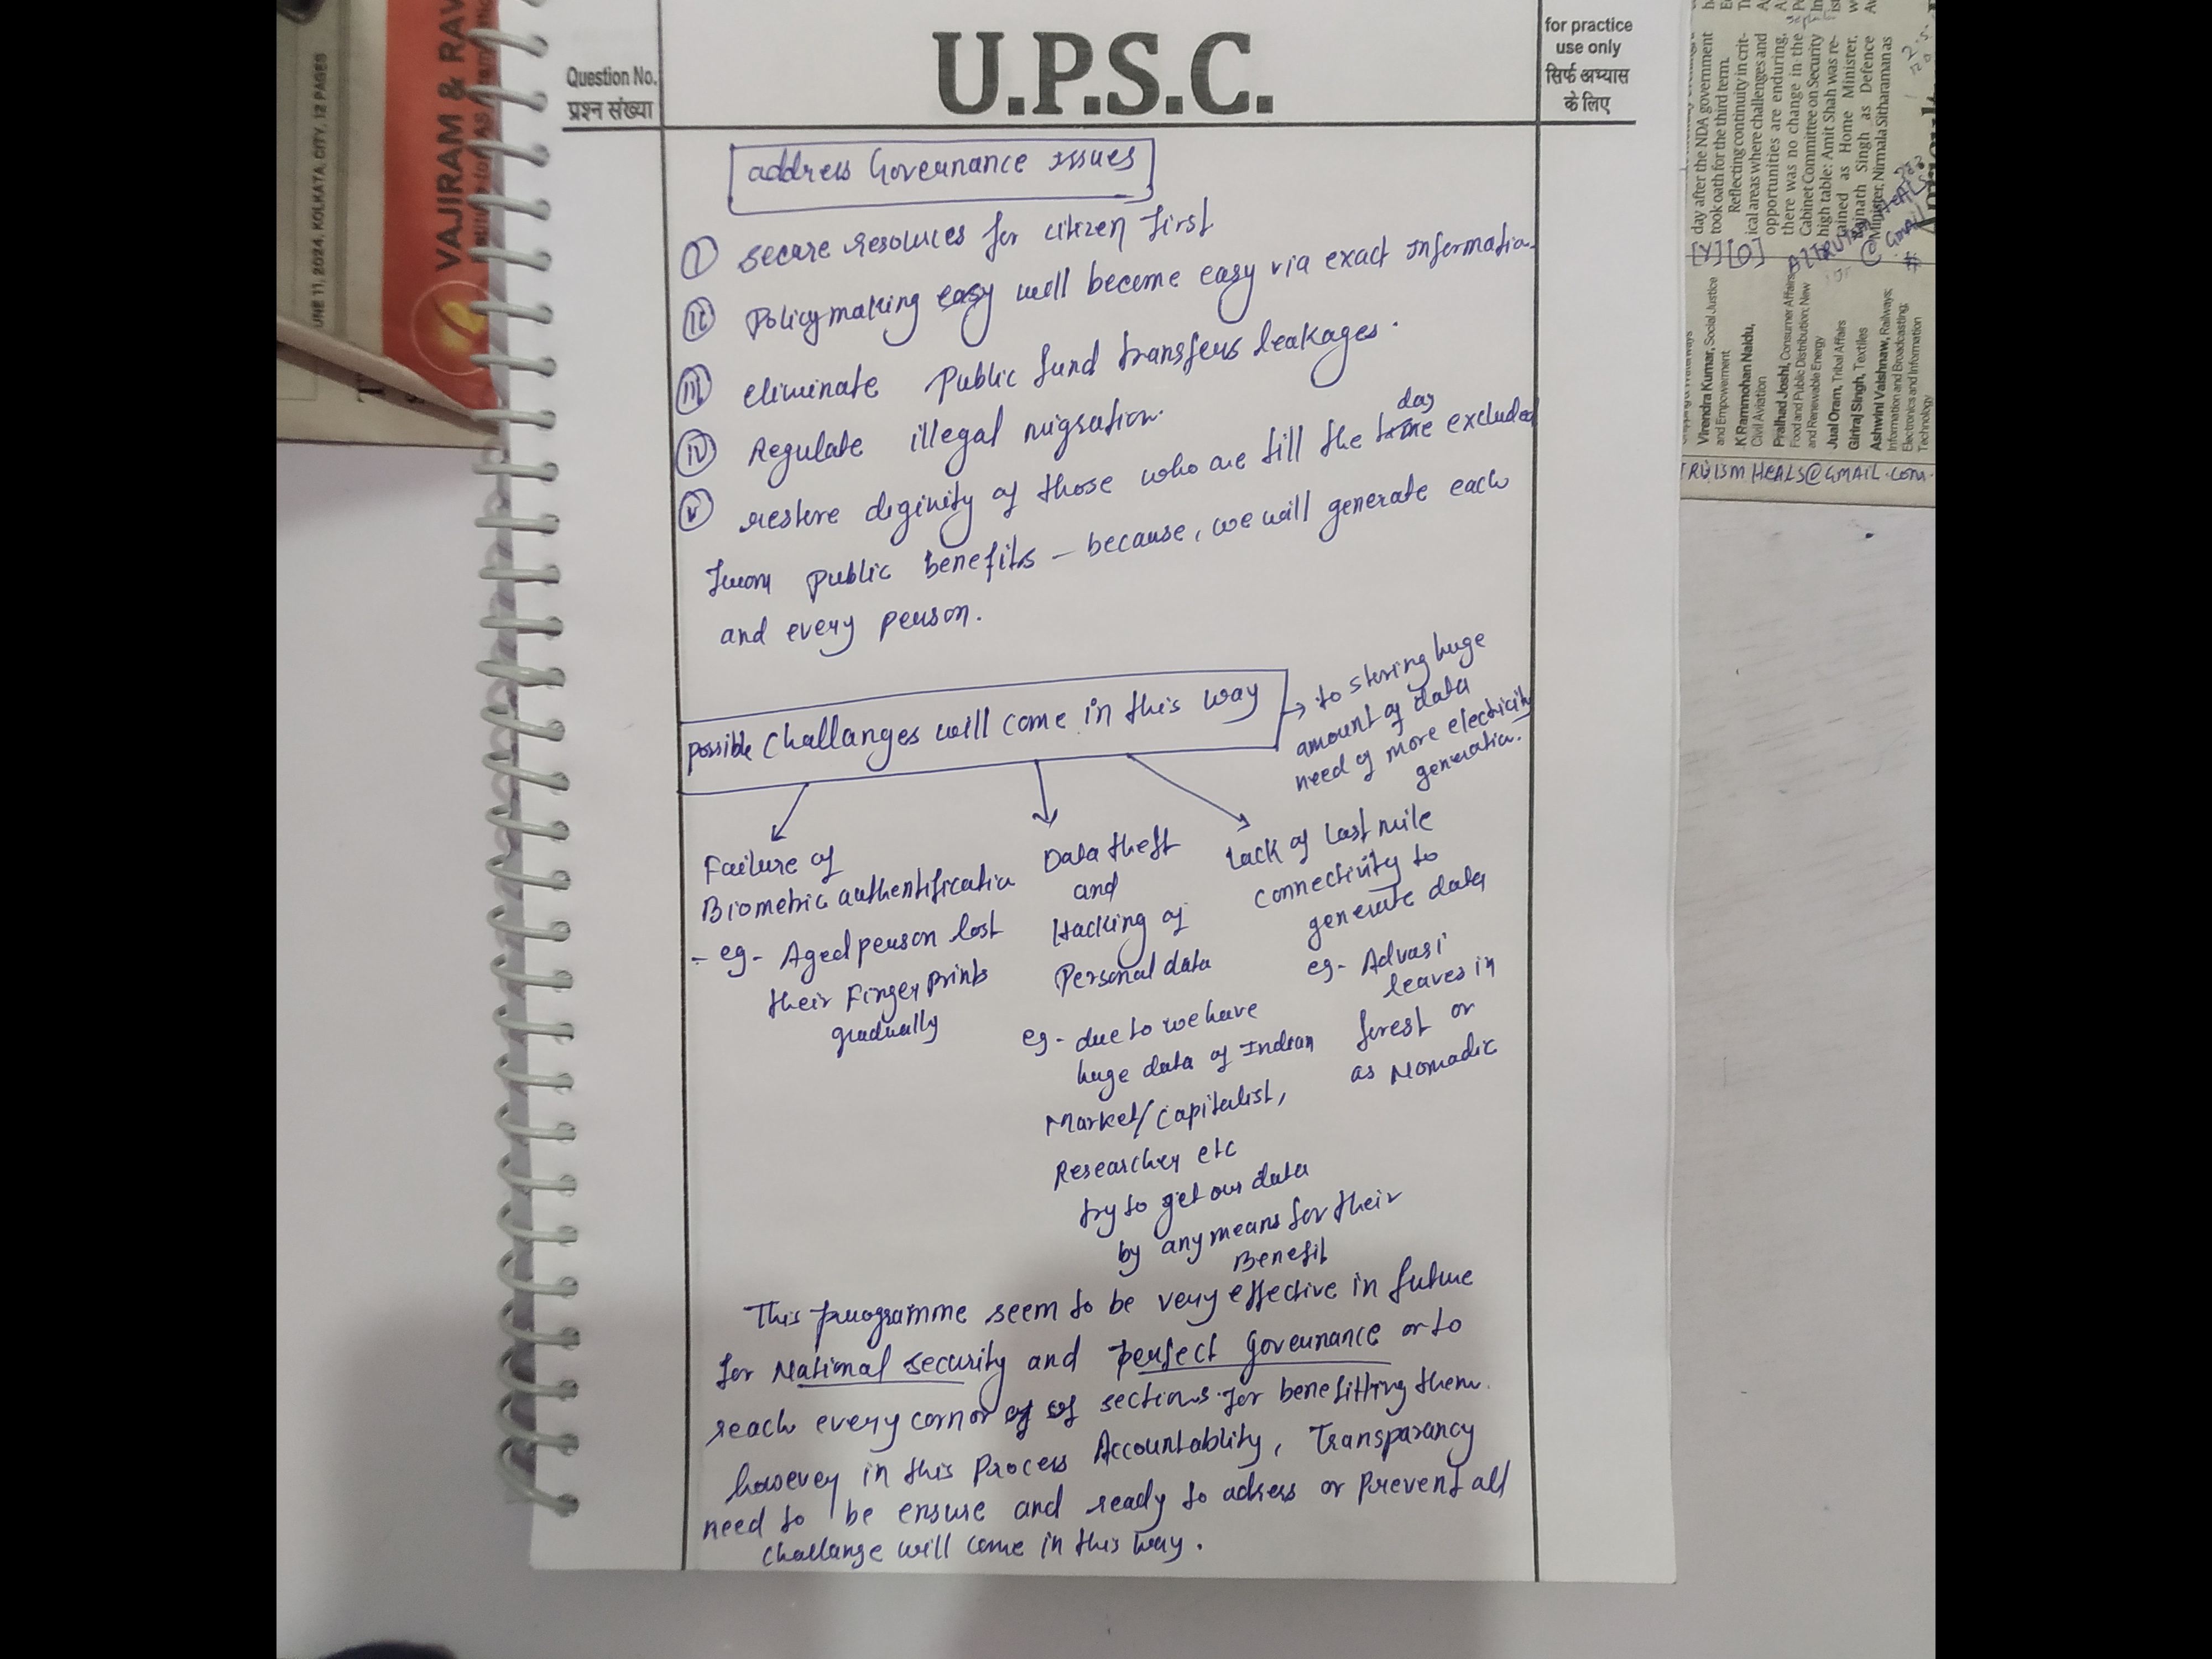 UNE 11, 2024, KOLKATA, CITY, 12 PAGES
VAJIRAM & RAV
Question No.
प्रश्न संख्या
U.P.S.C.
for practice
use only
सिर्फ अभ्यास
के लिए
address Governance issues
I secure resources for citizen first
II Policymaking easy will become easy via exact information
III eliminate Public fund transfers leakages.
IV Regulate illegal migration.
V restore diginity of those who are till the day excluded
from public benefits – because, we will generate each
and every person.
possible challanges will come in this way
→ to storing huge
amount of data
need of more electricity
generation.
Failure of
Biometric authentification
- eg- Aged person lost
their Finger prints
gradually
Data theft
and
Hacking of
Personal data
eg- due to we have
huge data of Indian
Market/capitalist,
Researcher etc
try to get our data
by any means for their
Benefit
Lack of Last mile
connectivity to
generate data
eg- Advasi
leaves in
forest or
as Nomadic
This programme seem to be very effective in future
for National security and perfect Governance or to
reach every cornor of of sections for benefitting them.
however in this Process Accountablity, Transparancy
need to be ensure and ready to adress or prevent all
challange will come in this way.
day after the NDA government
took oath for the third term.
Reflecting continuity in crit-
ical areas where challenges and
opportunities are enduring,
there was no change in the
Cabinet Committee on Security
high table: Amit Shah was re-
tained as Home Minister,
Rajnath Singh as Defence
Minister, Nirmala Sitharaman as
Virendra Kumar, Social Justice
and Empowerment
K Rammohan Naidu,
Civil Aviation
Pralhad Joshi, Consumer Affairs,
Food and Public Distribution; New
and Renewable Energy
Jual Oram, Tribal Affairs
Giriraj Singh, Textiles
Ashwini Vaishnaw, Railways;
Information and Broadcasting;
Electronics and Information
Technology
TRUISM HEALS@GMAIL.COM.